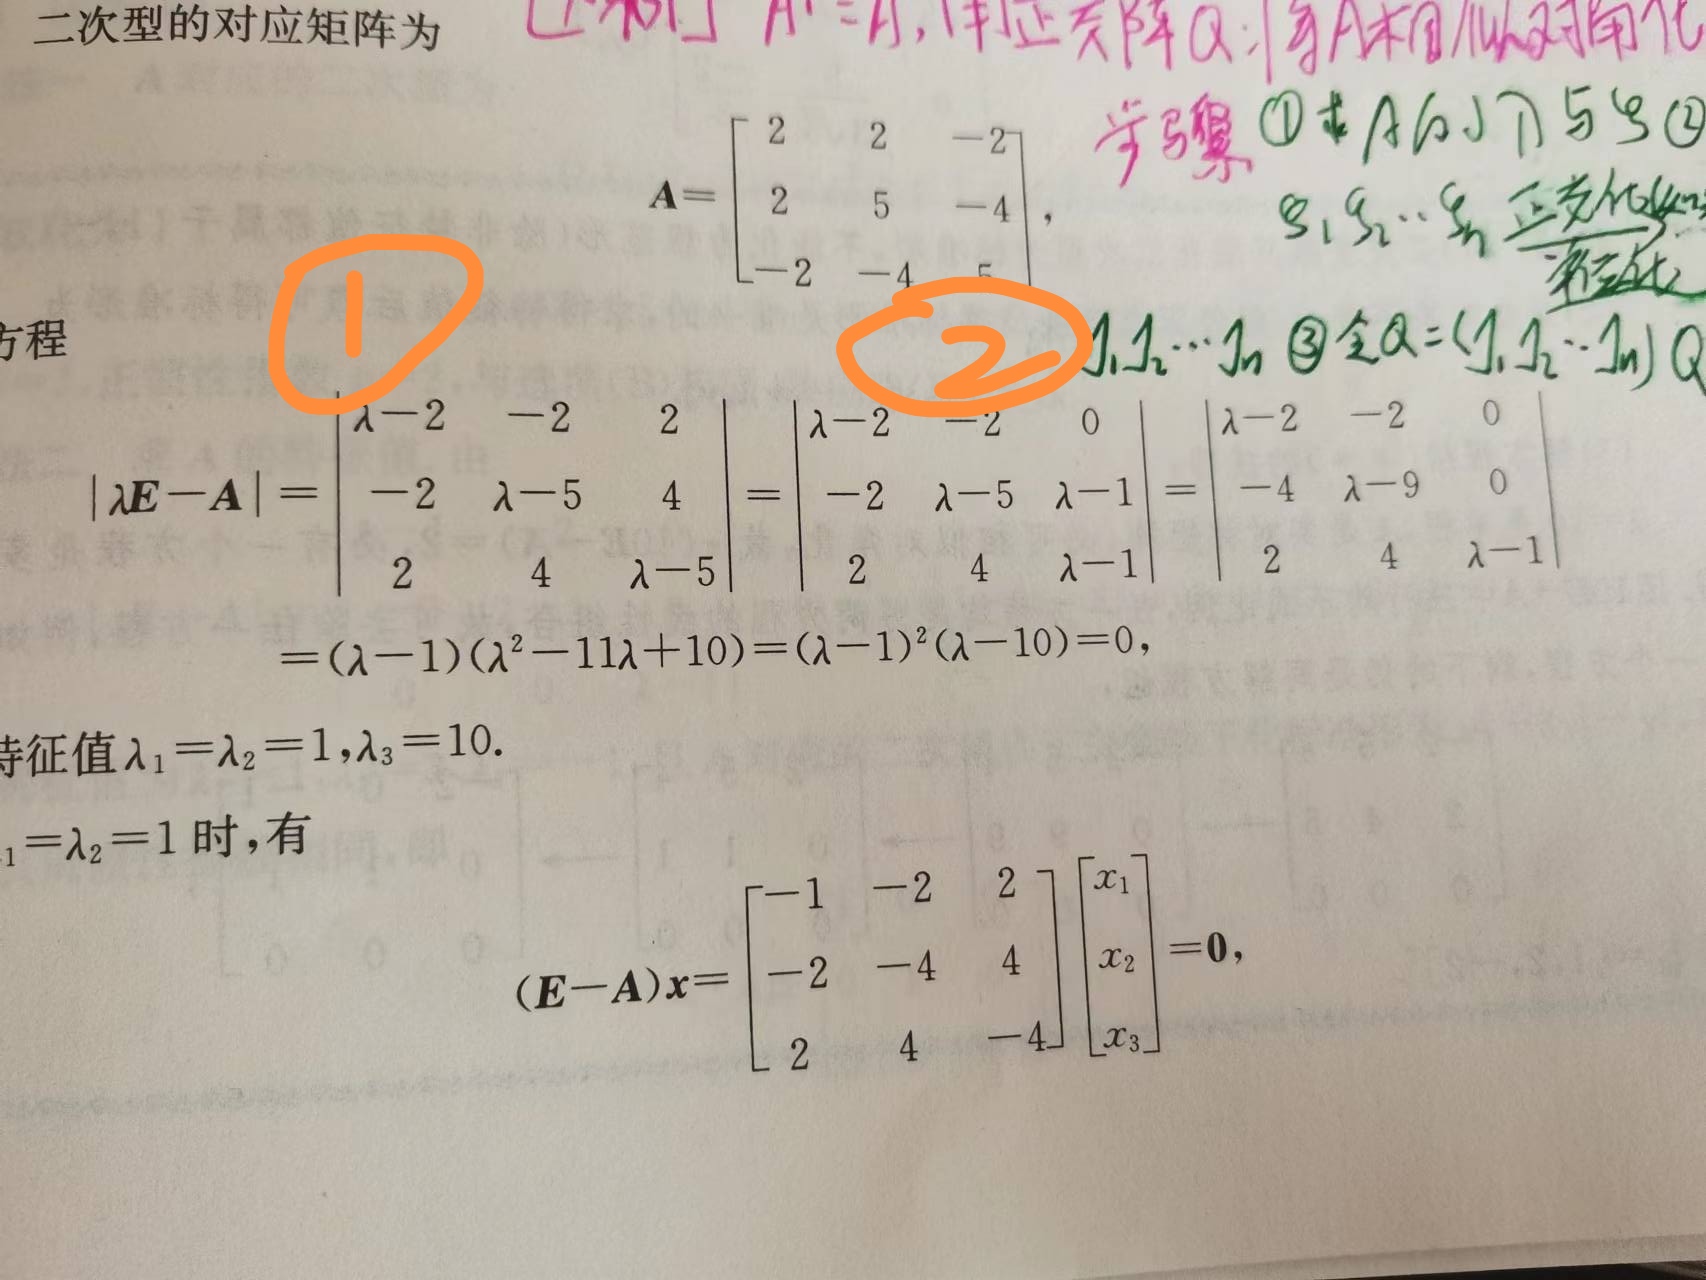 二次型的对应矩阵为
[ ] Aᵀ=A, 正交阵Q:将A相似对角化
步骤 ①求A的λ与ξ ②
ξ₁ ξ₂ ‥ ξn 正交化
单位化
A=[2 2 −2
2 5 −4
−2 −4 5],
① ②
方程
η₁ η₂ … ηn ③令Q=(η₁ η₂ ‥ ηn) Q
|λE−A|=|λ−2 −2 2|=|λ−2 −2 0|=|λ−2 −2 0|
|−2 λ−5 4| |−2 λ−5 λ−1| |−4 λ−9 0|
|2 4 λ−5| |2 4 λ−1| |2 4 λ−1|
=(λ−1)(λ²−11λ+10)=(λ−1)²(λ−10)=0,
特征值λ₁=λ₂=1,λ₃=10.
₁=λ₂=1 时,有
(E−A)x=[−1 −2 2
−2 −4 4
2 4 −4][x₁
x₂
x₃]=0,